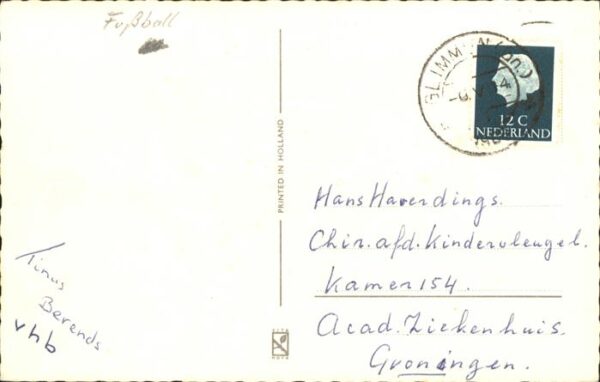 Fußball
GLIMMEN (Gn.)
12 C
NEDERLAND
PRINTED IN HOLLAND
Hans Haverdings.
Chir. afd. Kindervleugel.
Kamer 154.
Acad. Ziekenhuis.
Groningen.
Tinus
Berends
vhb